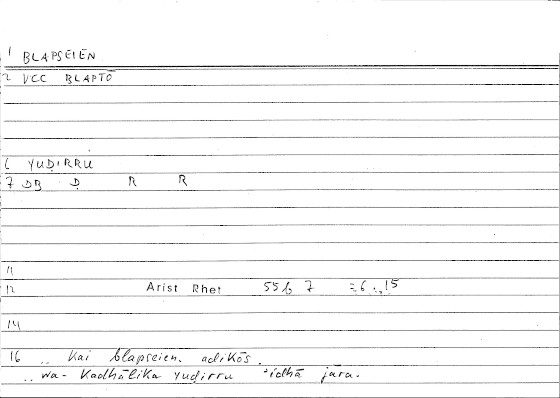 1 BLAPSEIEN
2 VCC BLAPTŌ
6 YUḌIRRU
7 DB Ḍ R R
11
12 Arist Rhet 55b 7 = 6 . 15
14
16 .. Kai blapseien. adikōs.
.. wa- Kadhālika yuḍirru 'idhā jāra.